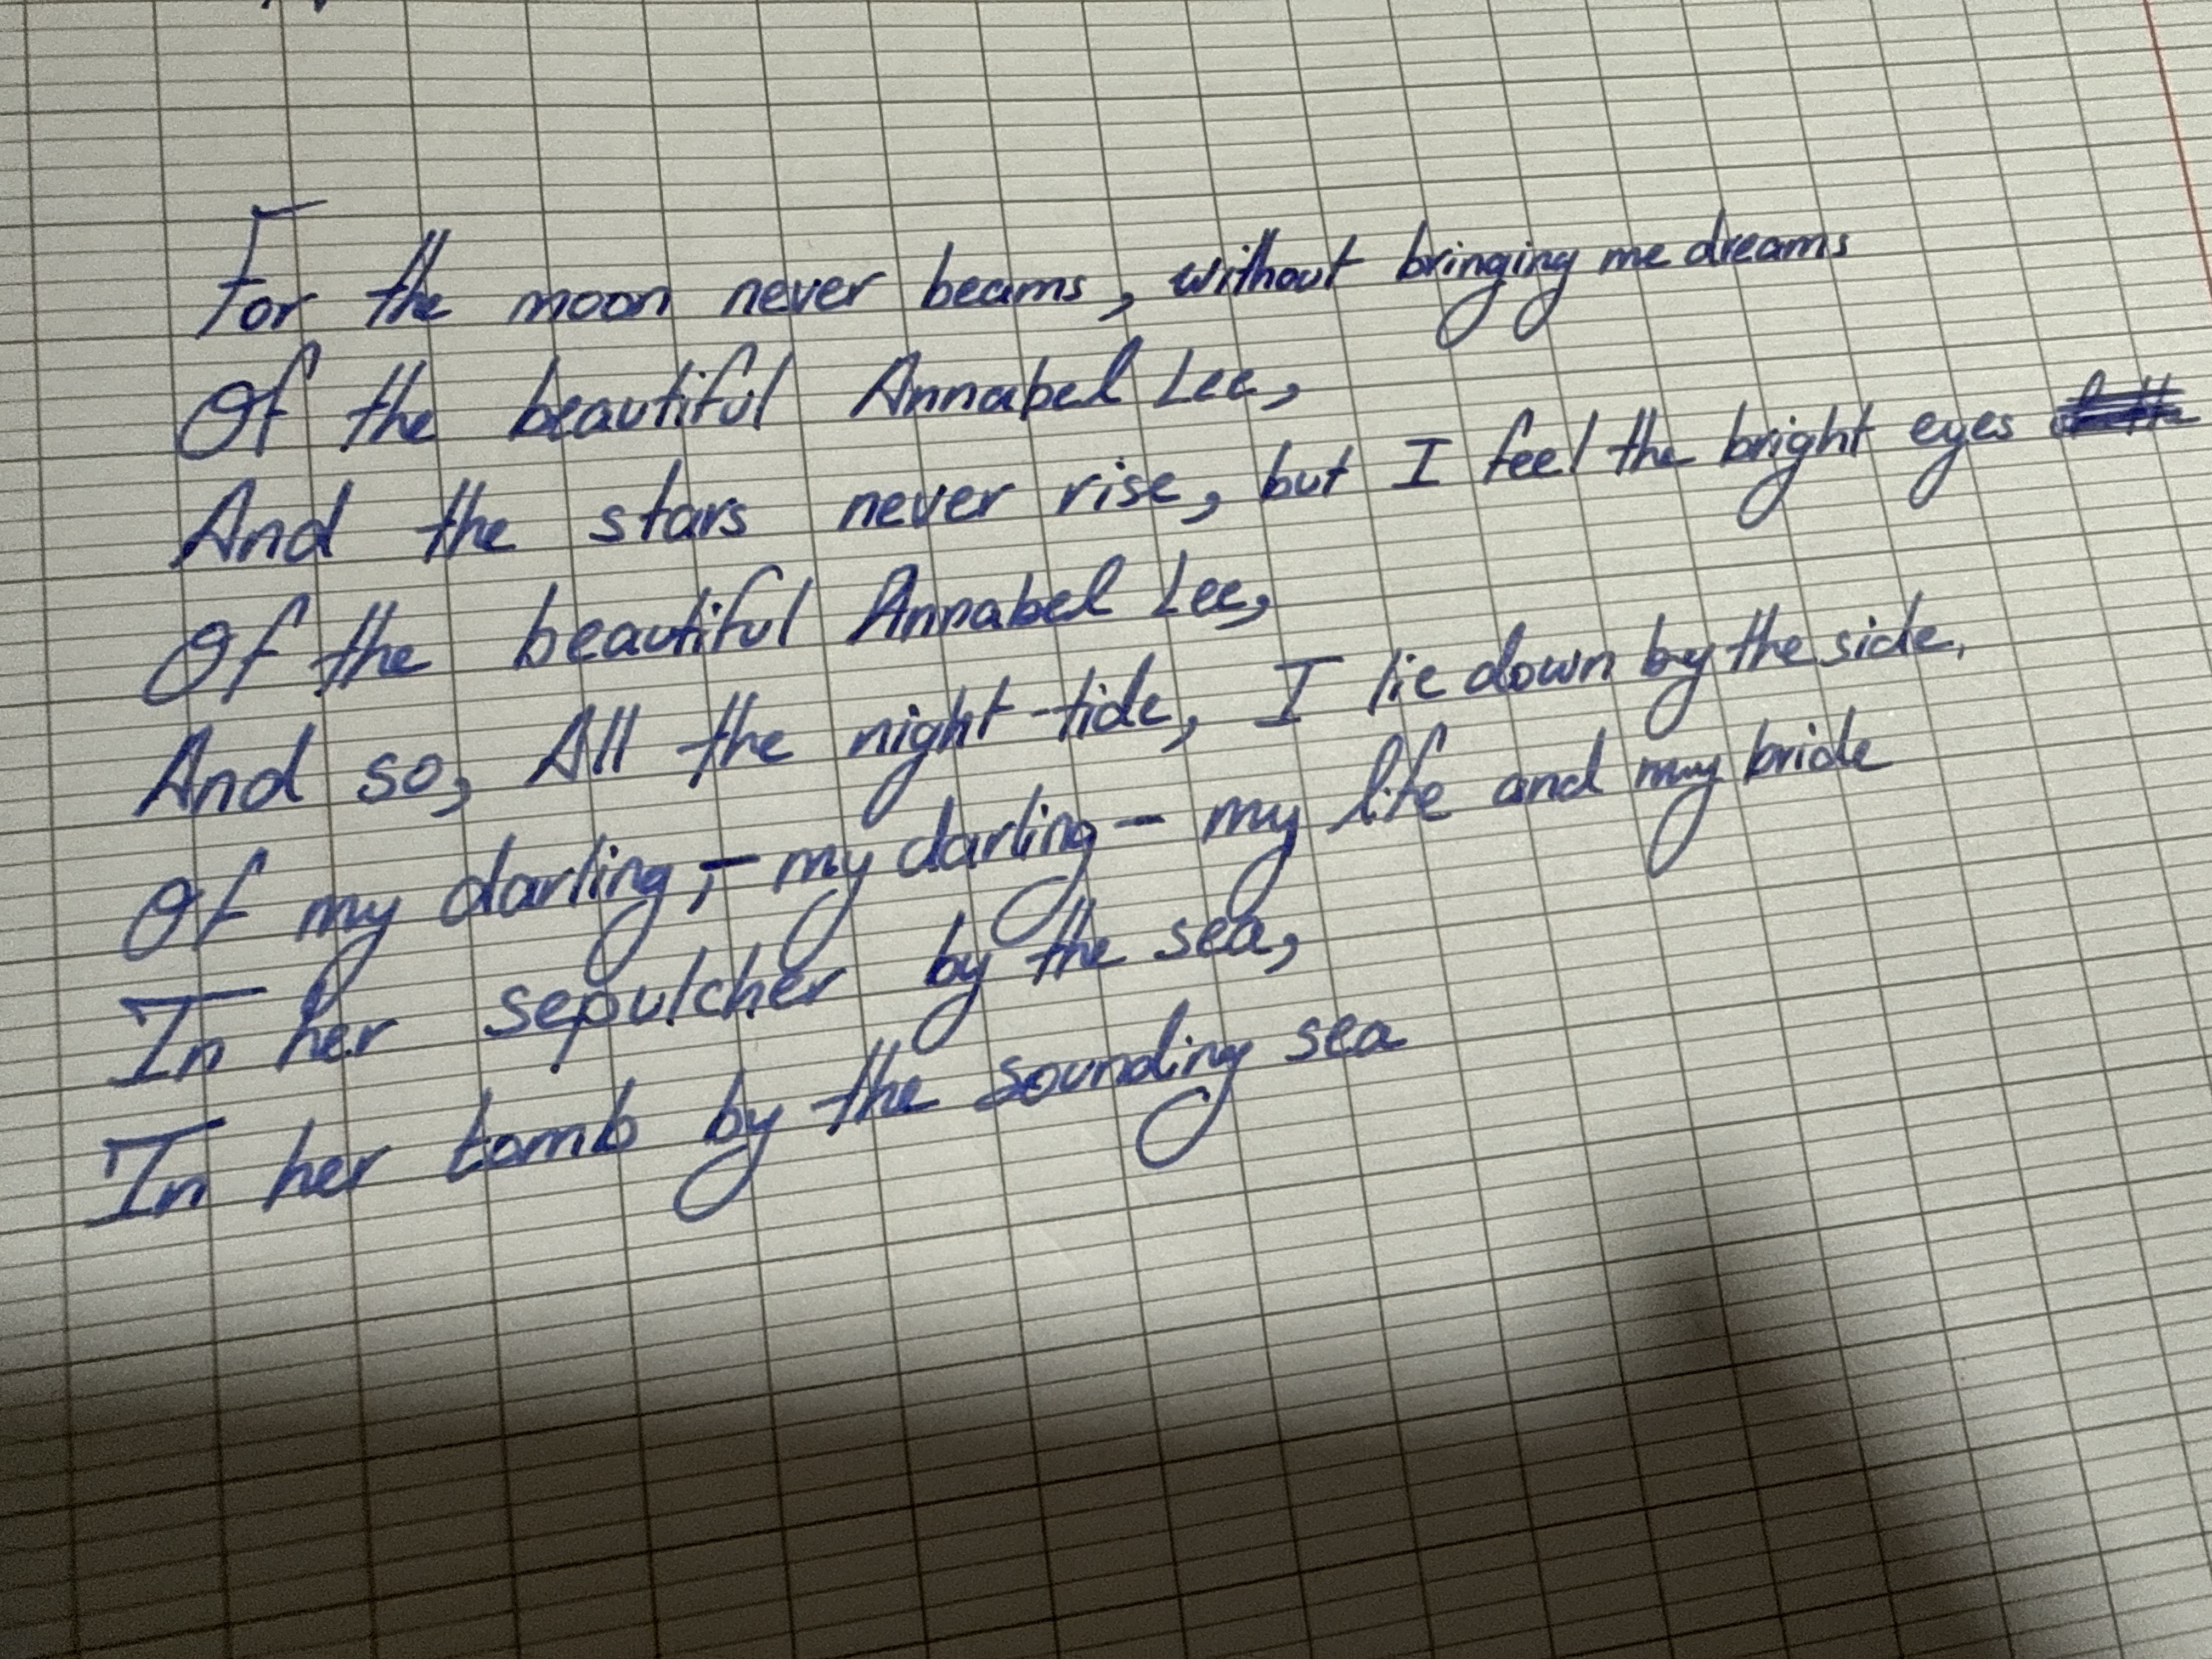 For the moon never beams, without bringing me dreams
Of the beautiful Annabel Lee,
And the stars never rise, but I feel the bright eyes
Of the beautiful Annabel Lee,
And so, All the night-tide, I lie down by the side,
Of my darling,- my darling - my life and my bride
In her sepulcher by the sea,
In her tomb by the sounding sea